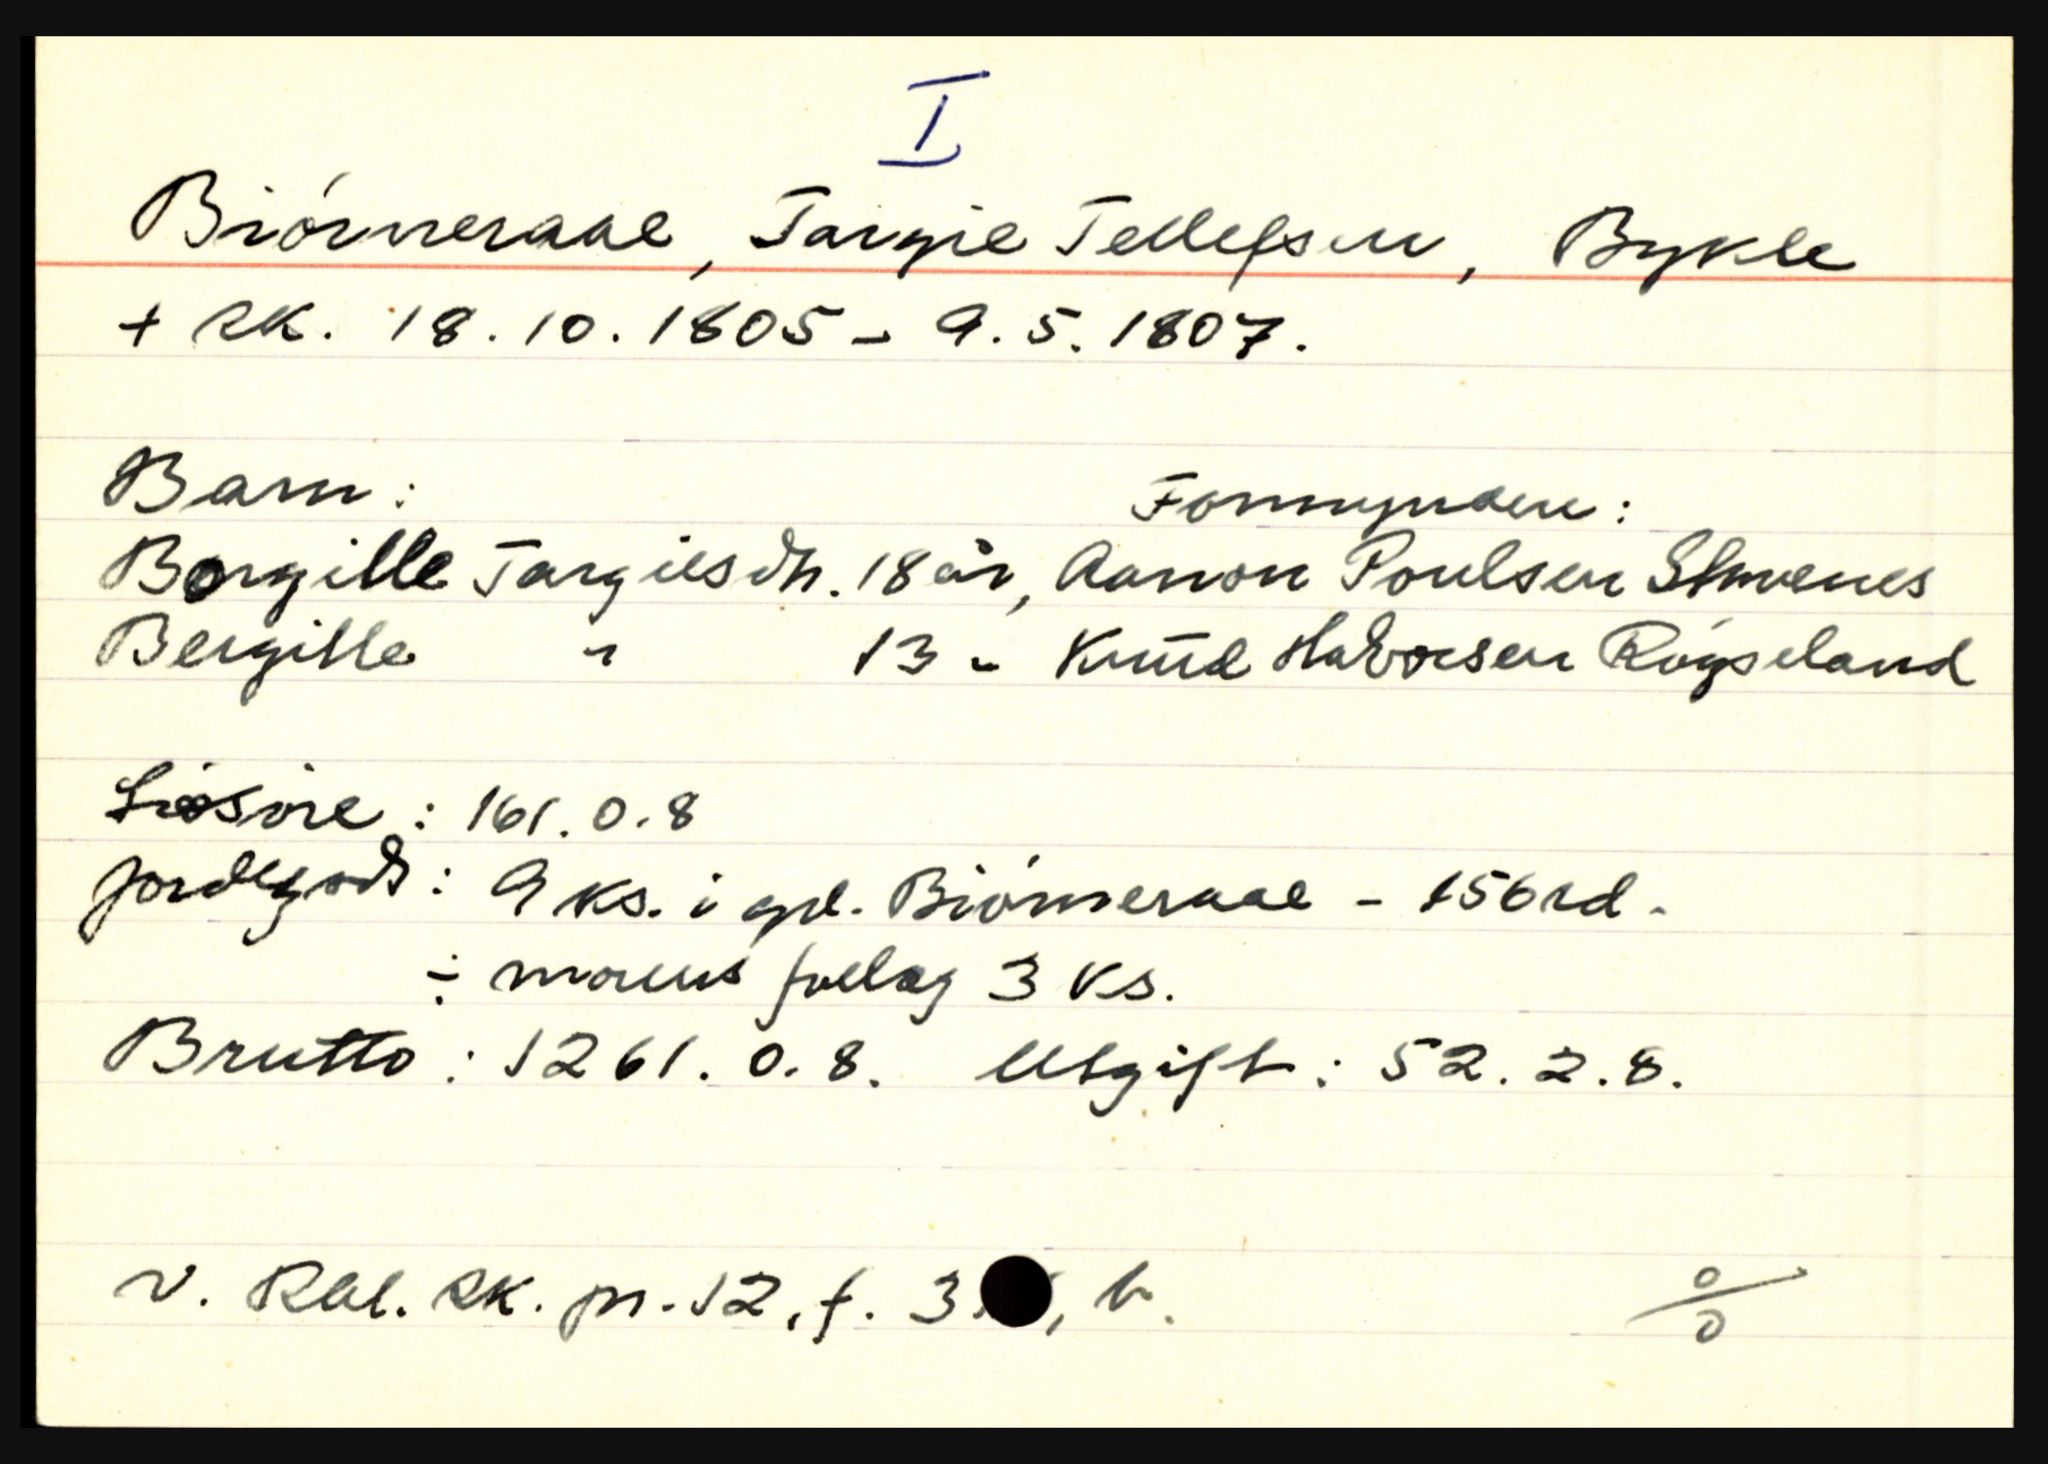 I
Biórneraae, Targie Tellefsen, Bykle
+ sk. 18.10.1805 - 9.5.1807.
Barn: Formyndere:
Borgille Targiesdt. 18 år, Aanon Poulsen
Bergille " 13 " Knud Halvorsen Røgseland
Liøsøre: 161.0.8
Jordegods: 9 ks. i gd. Biórneraae - 156 rd.
÷ morens follag 3 ks.
Brutto: 1261.0.8. Utgift: 52.2.8.
v. Rbl. sk. pr. 12, f. 3 , b.